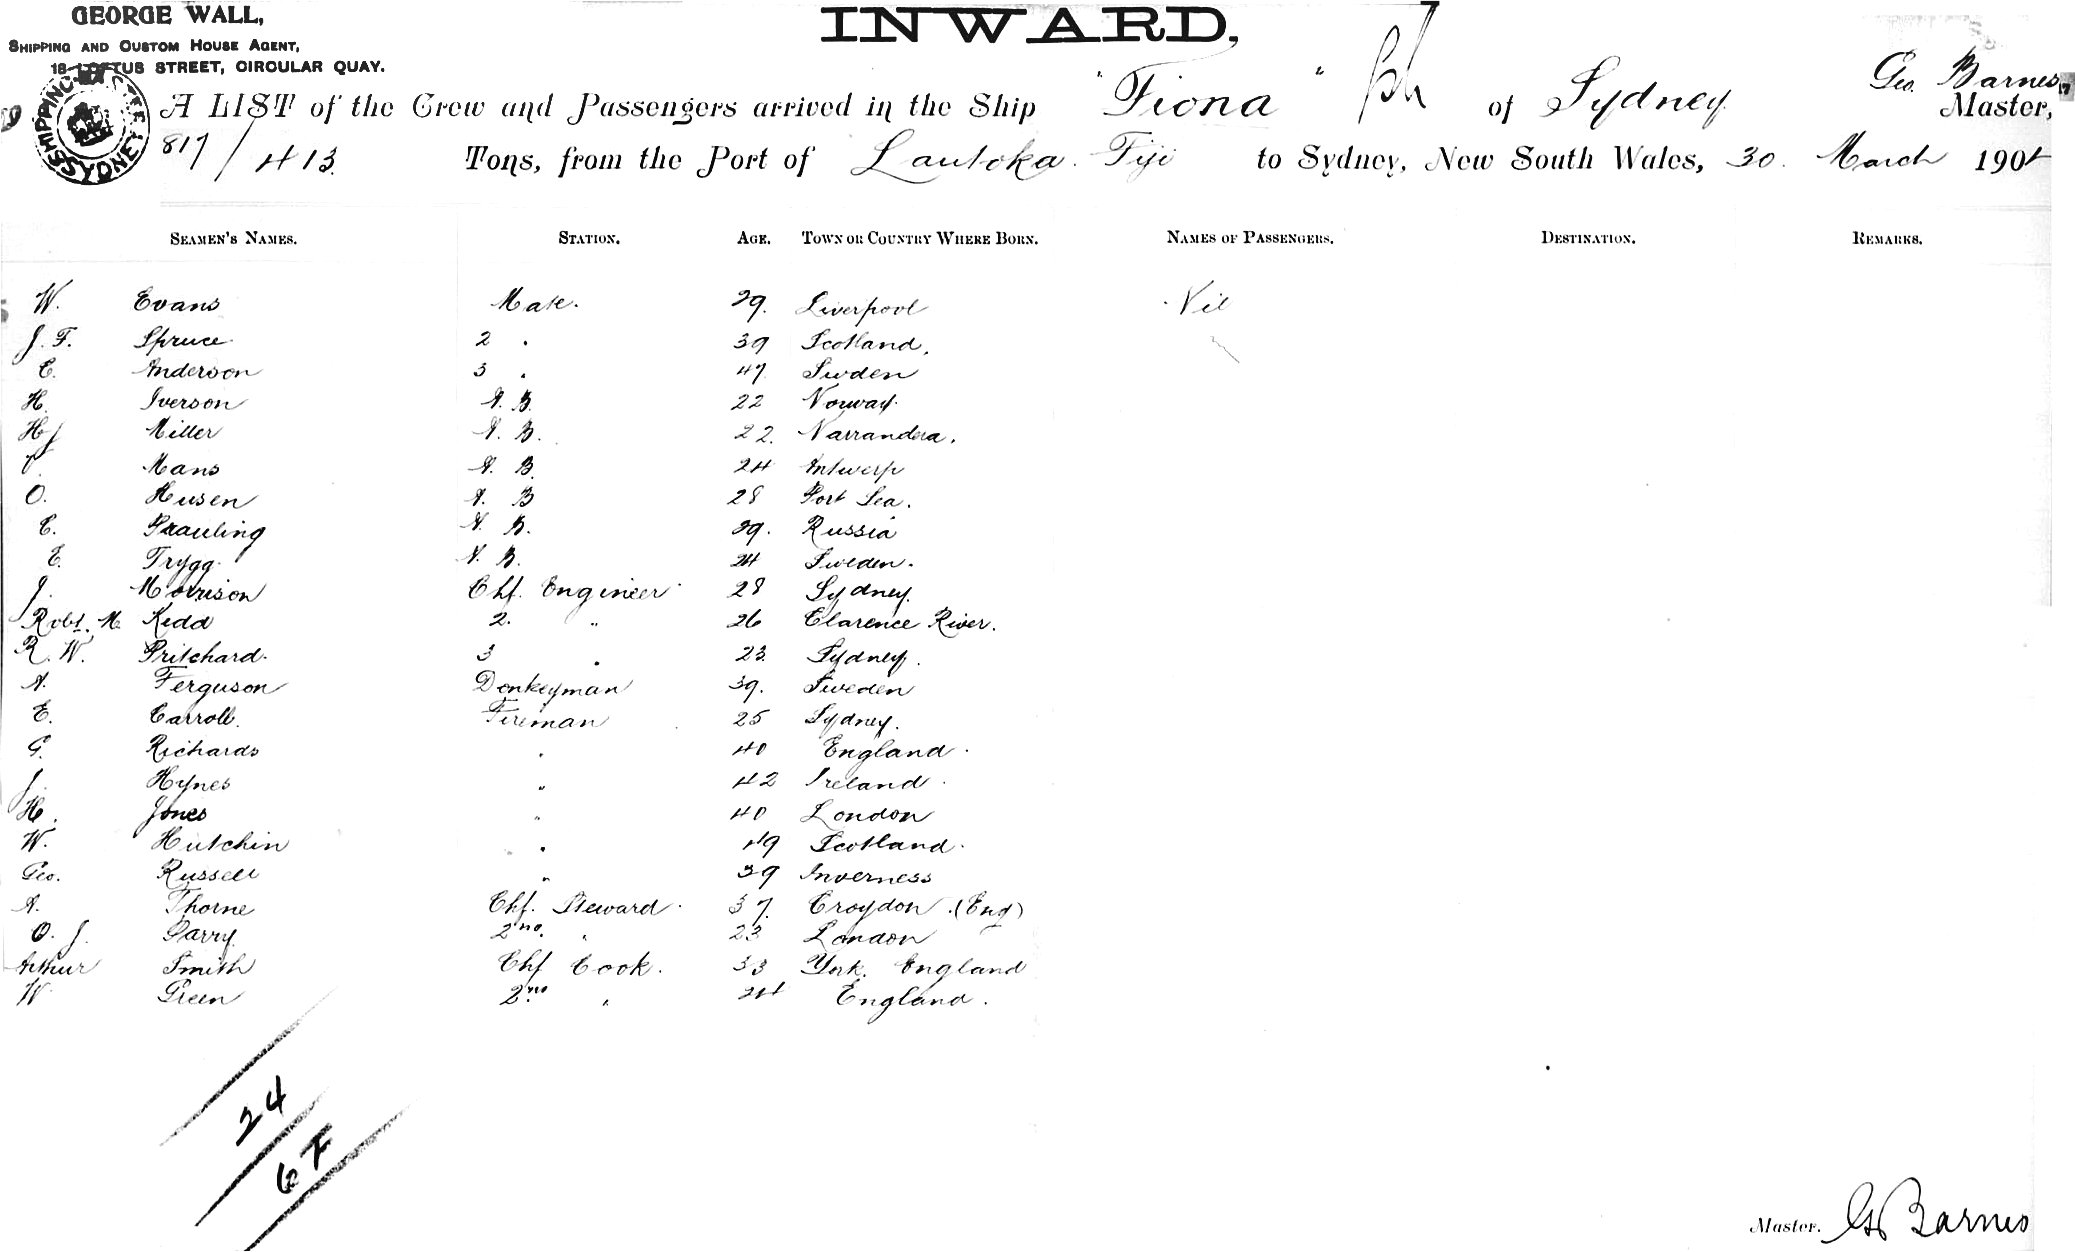 GEORGE WALL,
SHIPPING AND CUSTOM HOUSE AGENT,
18 LOFTUS STREET, CIRCULAR QUAY.
SHIPPING SYDNEY
INWARD,
A LIST of the Crew and Passengers arrived in the Ship "Fiona" of Sydney Geo. Barnes Master,
817/413 Tons, from the Port of Lautoka. Fiji to Sydney, New South Wales, 30. March 1904
SEAMEN'S NAMES. STATION. AGE. TOWN OR COUNTRY WHERE BORN. NAMES OF PASSENGERS. DESTINATION. REMARKS.
W. Evans Mate. 29. Liverpool Nil
J. F. Spruce 2 " 39 Scotland.
E. Anderson 3 " 47 Sweden
H. Iverson A. B. 22 Norway.
H J Miller A. B. 22. Narrandera.
Mans A. B. 24 Antwerp
O. Husen A. B 28 Port Sea.
C. Prauling A. B. 29. Russia
E. Trygg. A. B. 24 Sweden.
J. Morrison Chf. Engineer 28 Sydney.
Robt. M. Kidd 2. " 26 Clarence River.
R. W. Pritchard. 3 " 23 Sydney.
A. Ferguson Donkeyman 39. Sweden
E. Carroll. Fireman 25 Sydney.
G. Richards " 40 England.
J. Hynes " 42 Ireland.
H. Jones " 40 London
W. Hutchin " 49 Scotland.
Geo. Russell " 39 Inverness
A. Thorne Chf. Steward. 37. Croydon. (Eng)
O. J. Parry 2nd. " 23 London
Arthur Smith Chf Cook. 33 York. England
W Green 2nd " 24 England.
24
6 F
Master. G Barnes